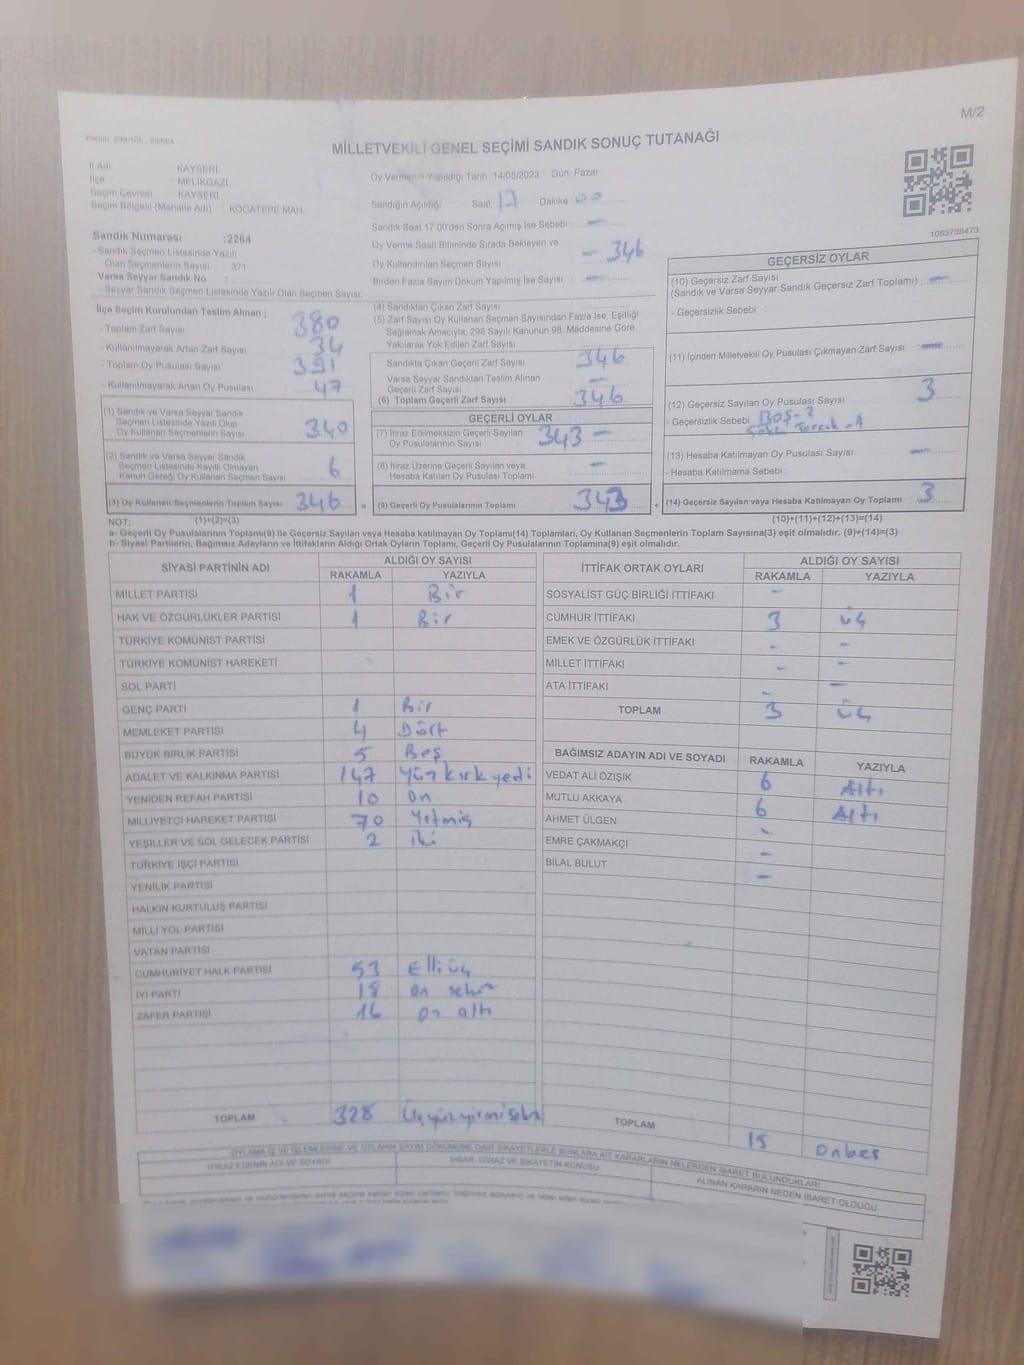 M/2
MİLLETVEKİLİ GENEL SEÇİMİ SANDIK SONUÇ TUTANAĞI
İl Adı KAYSERİ
İlçe MELİKGAZİ
Seçim Çevresi KAYSERİ
Seçim Bölgesi (Mahalle Adı) : KOCATEPE MAH.
Oy Vermenin Yapıldığı Tarih 14/05/2023 Gün: Pazar
Sandığın Açıldığı Saat 17 Dakika 00
Sandık Saat 17.00'den Sonra Açılmış İse Sebebi : -
Oy Verme Saati Bitiminde Sırada Bekleyen ve
Oy Kullandırılan Seçmen Sayısı : - 346
Birden Fazla Sayım Döküm Yapılmış İse Sayısı : -
1063738473
Sandık Numarası :2264
- Sandık Seçmen Listesinde Yazılı
Olan Seçmenlerin Sayısı : 371
Varsa Seyyar Sandık No :
- Seyyar Sandık Seçmen Listesinde Yazılı Olan Seçmen Sayısı:
İlçe Seçim Kurulundan Teslim Alınan :
- Toplam Zarf Sayısı 380
- Kullanılmayarak Artan Zarf Sayısı 34
- Toplam Oy Pusulası Sayısı 391
- Kullanılmayarak Artan Oy Pusulası 47
(1) Sandık ve Varsa Seyyar Sandık
Seçmen Listesinde Yazılı Olup
Oy Kullanan Seçmenlerin Sayısı 340
(2) Sandık ve Varsa Seyyar Sandık
Seçmen Listesinde Kayıtlı Olmayan
Kanun Gereği Oy Kullanan Seçmen Sayısı 6
(3) Oy Kullanan Seçmenlerin Toplam Sayısı 346
(1)+(2)=(3)
(4) Sandıktan Çıkan Zarf Sayısı :
(5) Zarf Sayısı Oy Kullanan Seçmen Sayısından Fazla İse, Eşitliği
Sağlamak Amacıyla, 298 Sayılı Kanunun 98. Maddesine Göre
Yakılarak Yok Edilen Zarf Sayısı :
Sandıkta Çıkan Geçerli Zarf Sayısı : 346
Varsa Seyyar Sandıktan Teslim Alınan
Geçerli Zarf Sayısı : -
(6) Toplam Geçerli Zarf Sayısı : 346
GEÇERLİ OYLAR
(7) İtiraz Edilmeksizin Geçerli Sayılan
Oy Pusulalarının Sayısı : 343 -
(8) İtiraz Üzerine Geçerli Sayılan veya
Hesaba Katılan Oy Pusulası Toplamı : -
= (9) Geçerli Oy Pusulalarının Toplamı : 343 +
GEÇERSİZ OYLAR
(10) Geçersiz Zarf Sayısı
(Sandık ve Varsa Seyyar Sandık Geçersiz Zarf Toplamı) : -
- Geçersizlik Sebebi :
(11) İçinden Milletvekili Oy Pusulası Çıkmayan Zarf Sayısı : -
(12) Geçersiz Sayılan Oy Pusulası Sayısı : 3
- Geçersizlik Sebebi BOŞ-2
(13) Hesaba Katılmayan Oy Pusulası Sayısı : -
- Hesaba Katılmama Sebebi :
(14) Geçersiz Sayılan veya Hesaba Katılmayan Oy Toplamı : 3
(10)+(11)+(12)+(13)=(14)
NOT:
a- Geçerli Oy Pusulalarının Toplamı(9) ile Geçersiz Sayılan veya Hesaba katılmayan Oy Toplamı(14) Toplamları, Oy Kullanan Seçmenlerin Toplam Sayısına(3) eşit olmalıdır. (9)+(14)=(3)
b- Siyasi Partilerin, Bağımsız Adayların ve İttifakların Aldığı Ortak Oyların Toplamı, Geçerli Oy Pusulalarının Toplamına(9) eşit olmalıdır.
SİYASİ PARTİNİN ADI ALDIĞI OY SAYISI
RAKAMLA YAZIYLA
MİLLET PARTİSİ 1 Bir
HAK VE ÖZGÜRLÜKLER PARTİSİ 1 Bir
TÜRKİYE KOMÜNİST PARTİSİ
TÜRKİYE KOMÜNİST HAREKETİ
SOL PARTİ
GENÇ PARTİ 1 Bir
MEMLEKET PARTİSİ 4 Dört
BÜYÜK BİRLİK PARTİSİ 5 Beş
ADALET VE KALKINMA PARTİSİ 147 Yüz kırk yedi
YENİDEN REFAH PARTİSİ 10 On
MİLLİYETÇİ HAREKET PARTİSİ 70 Yetmiş
YEŞİLLER VE SOL GELECEK PARTİSİ 2 iki
TÜRKİYE İŞÇİ PARTİSİ
YENİLİK PARTİSİ
HALKIN KURTULUŞ PARTİSİ
MİLLİ YOL PARTİSİ
VATAN PARTİSİ
CUMHURİYET HALK PARTİSİ 53 Elli üç
İYİ PARTİ 18 on sekiz
ZAFER PARTİSİ 16 on altı
TOPLAM 328 Üçyüzyirmisekiz
İTTİFAK ORTAK OYLARI ALDIĞI OY SAYISI
RAKAMLA YAZIYLA
SOSYALİST GÜÇ BİRLİĞİ İTTİFAKI -
CUMHUR İTTİFAKI 3 üç
EMEK VE ÖZGÜRLÜK İTTİFAKI - -
MİLLET İTTİFAKI - -
ATA İTTİFAKI - -
TOPLAM 3 Üç
BAĞIMSIZ ADAYIN ADI VE SOYADI RAKAMLA YAZIYLA
VEDAT ALİ ÖZIŞIK 6 Altı
MUTLU AKKAYA 6 Altı
AHMET ÜLGEN -
EMRE ÇAKMAKÇİ -
BİLAL BULUT -
TOPLAM 15 Onbeş
OYLAMA İŞ VE İŞLEMLERİNE VE OYLARIN SAYIM DÖKÜMÜNE DAİR ŞİKAYETLERLE BUNLARA AİT KARARLARIN NELERDEN İBARET BULUNDUKLARI
İTİRAZ EDENİN ADI VE SOYADI
İHBAR, İTİRAZ VE ŞİKAYETİN KONUSU
ALINAN KARARIN NEDEN İBARET OLDUĞU